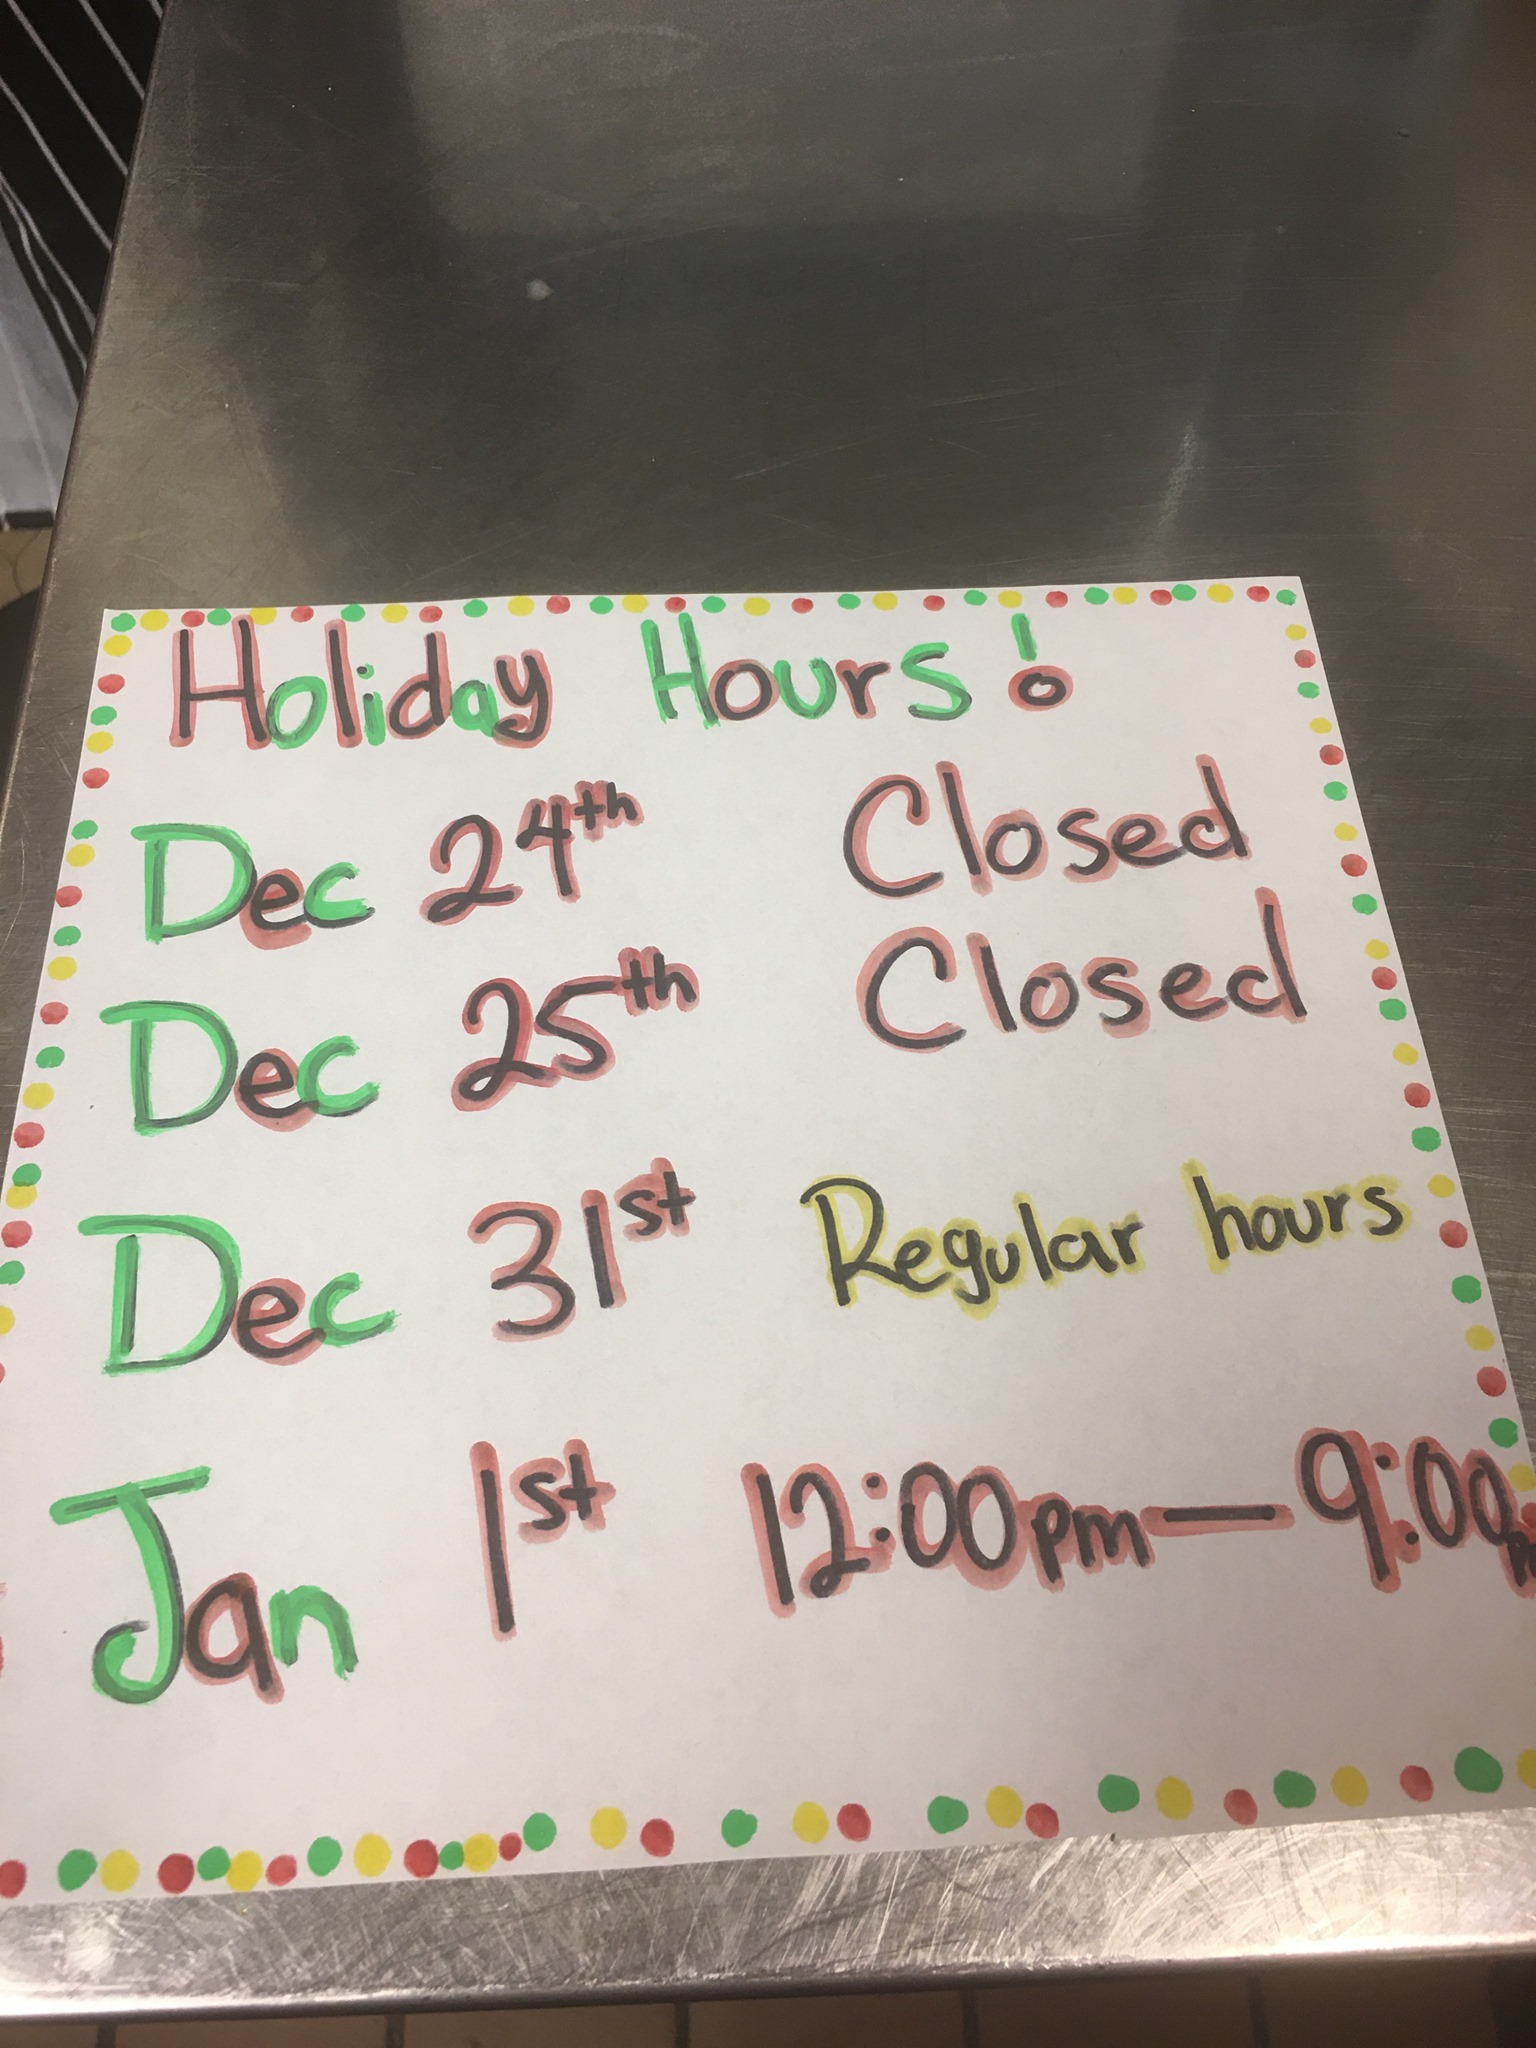 Holiday Hours!
Dec 24th Closed
Dec 25th Closed
Dec 31st Regular hours
Jan 1st 12:00pm — 9:00